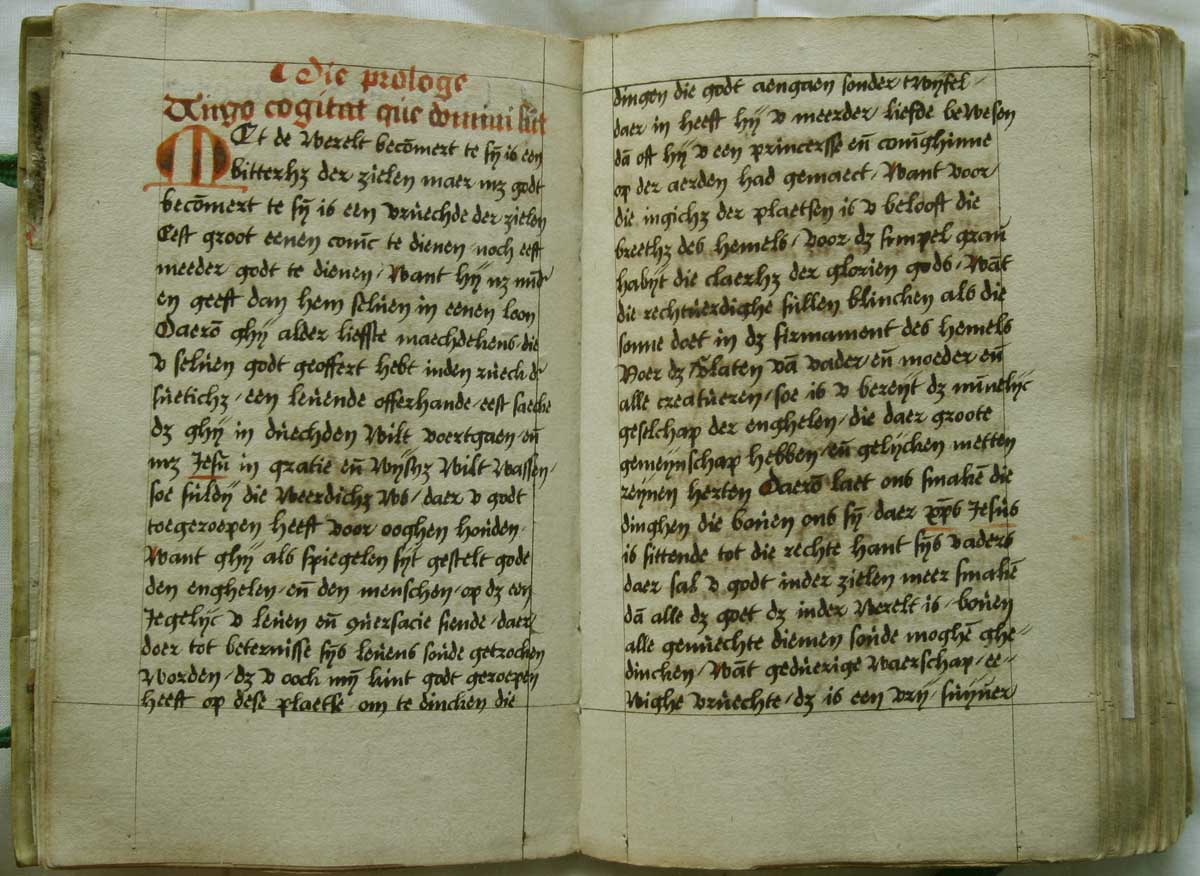 Die prologe
Uirgo cogitat que domini sūt
MEt de werelt becōmert te sÿ is een
bitterhʒ der zielen maer mʒ godt
becōmert te sÿ is een vruechde der zielen
Eest groot eenen conīc te dienen / noch eest
meeder godt te dienen / want hÿ nʒ mīd
en geeft dan hem seluen in eenen loon
Daerō ghÿ alder liefste maechdekens / die
v seluen godt geoffert hebt inden ruech dʳ
suetichʒ / een leuende offerhande / eest saecke
dʒ ghÿ in duechden wilt voertgaen / eñ
mʒ Jesū in gratie eñ wÿshʒ wilt wassen /
soe suldÿ die weerdichʒ ws / daer v godt
toegeroepen heeft voor ooghen houden /
Want ghÿ als spiegelen sÿt gestelt gode
den enghelen / eñ den menschen / op dʒ een
Jegelÿc v leuen eñ ꝯuersacie siende / daer
doer tot beternisse sÿs leuens soude getrocken
worden / dʒ v oock mÿ kint godt geroepen
heeft op dese plaetse / om te dincken die
dingen die godt aengaen sonder twÿfel /
daer in heeft hÿ v meerder liefde bewesen
dā oft hÿ v een princersse eñ conīghinne
op der aerden had gemaect / Want voor
die ingichʒ der plaetsen is v belooft die
breethʒ des hemels / voor dʒ simpel grau
habÿt die claerhʒ der glorien gods / wāt
die rechtuerdighe sullen blincken als die
sonne doet in dʒ firmament des hemels
Voer dʒ v'laten vā vader / eñ moeder eñ
alle creatueren / soe is v bereÿt dʒ mīnelÿc
geselschap der enghelen / die daer groote
gemeÿnschap hebben / eñ gelÿcken metten
reÿnen herten Daerō laet ons smakē die
dinghen die bouen ons sÿ / daer xp̄s Jesus
is sittende tot die rechte hant sÿs vaders
daer sal v godt inder zielen meer smakē
dā alle dʒ goet dʒ inder werelt is / bouen
alle genuechte diemen soude moghē ghe-
dincken / wāt geduerige waerschap / ee-
wighe vruechte / dʒ is een vrÿ / suÿuer